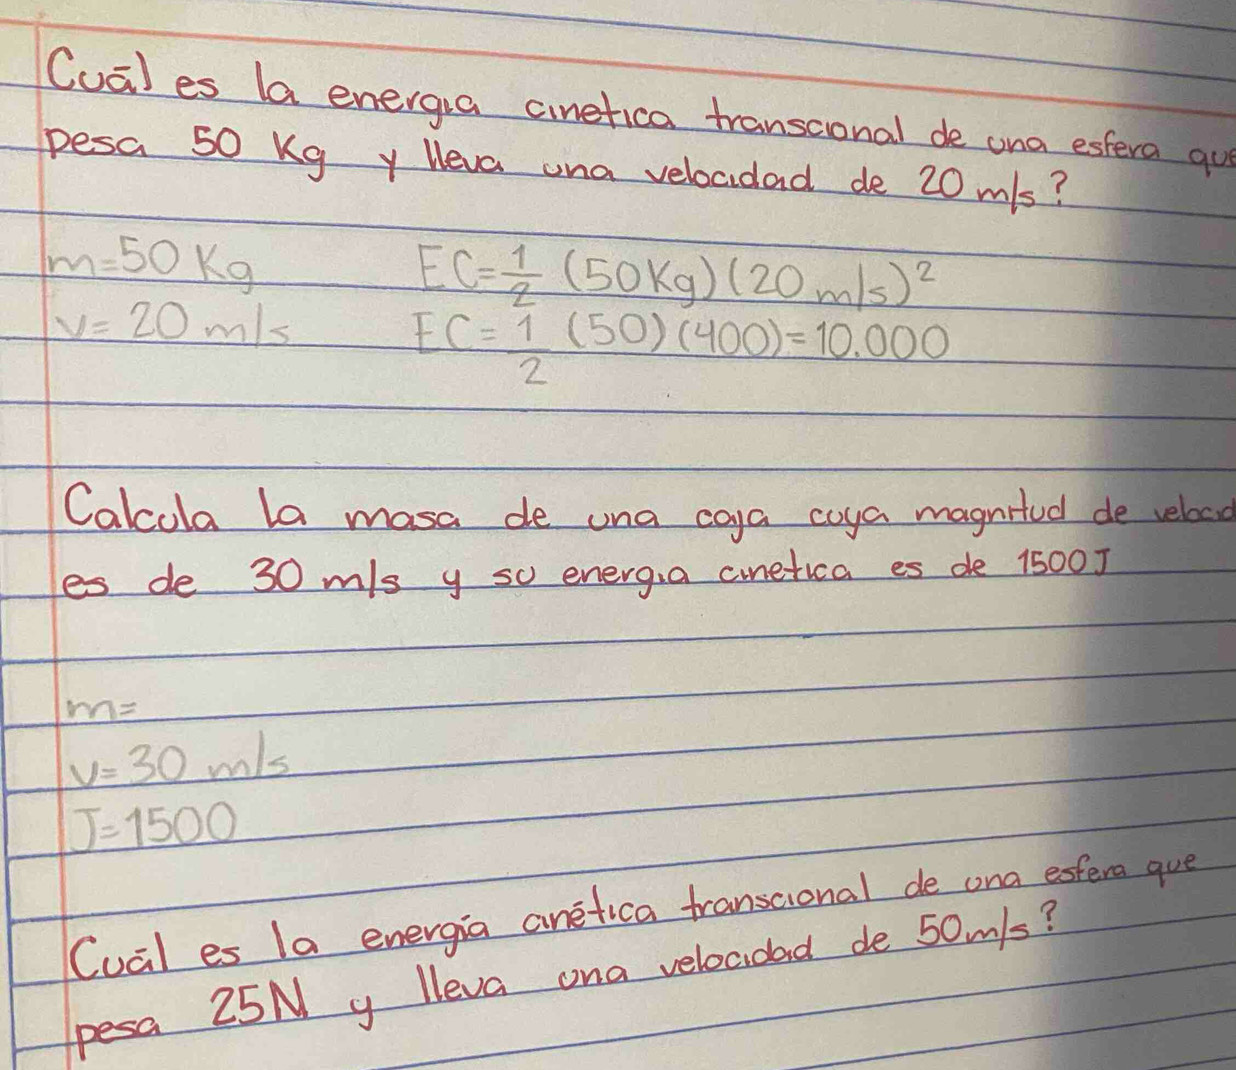 Cuál es la energia cinetica transcional de una esfera que
pesa 50 Kg y lleva una velocidad de 20 m/s?
m=50 Kg EC=1/2 (50Kg)(20 m/s)²
v= 20 m/s EC=1/2 (50)(400)=10.000
Calcula la masa de una caja cuya magnitud de velocid
es de 30 m/s y su energia cinetica es de 1500J
m=
v=30 m/s
J=1500
Cuál es la energía cinética transcional de una esfera que
pesa 25N y lleva una velocidad de 50m/s?